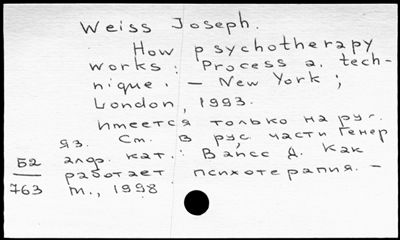 Weiss Joseph.
How psychotherapy
works: Process a. tech-
nique. – New York;
London, 1993.
Имеется только на рус.
яз. См. в рус. части Генер
алф. кат.: Вайсс Д. Как
Б2 работает психотерапия. –
763 М., 1998